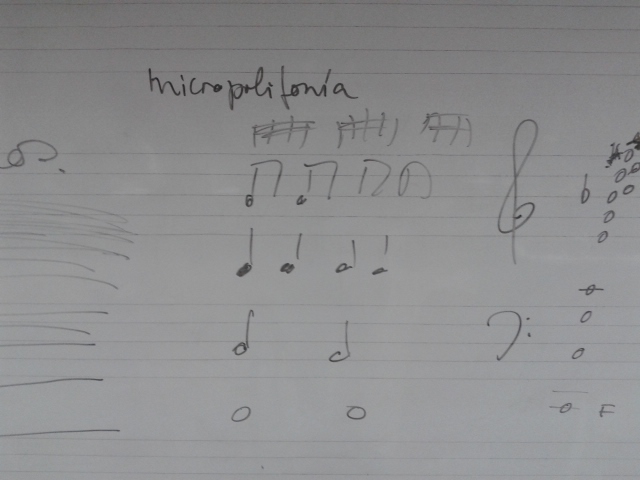 micropolifonía
F